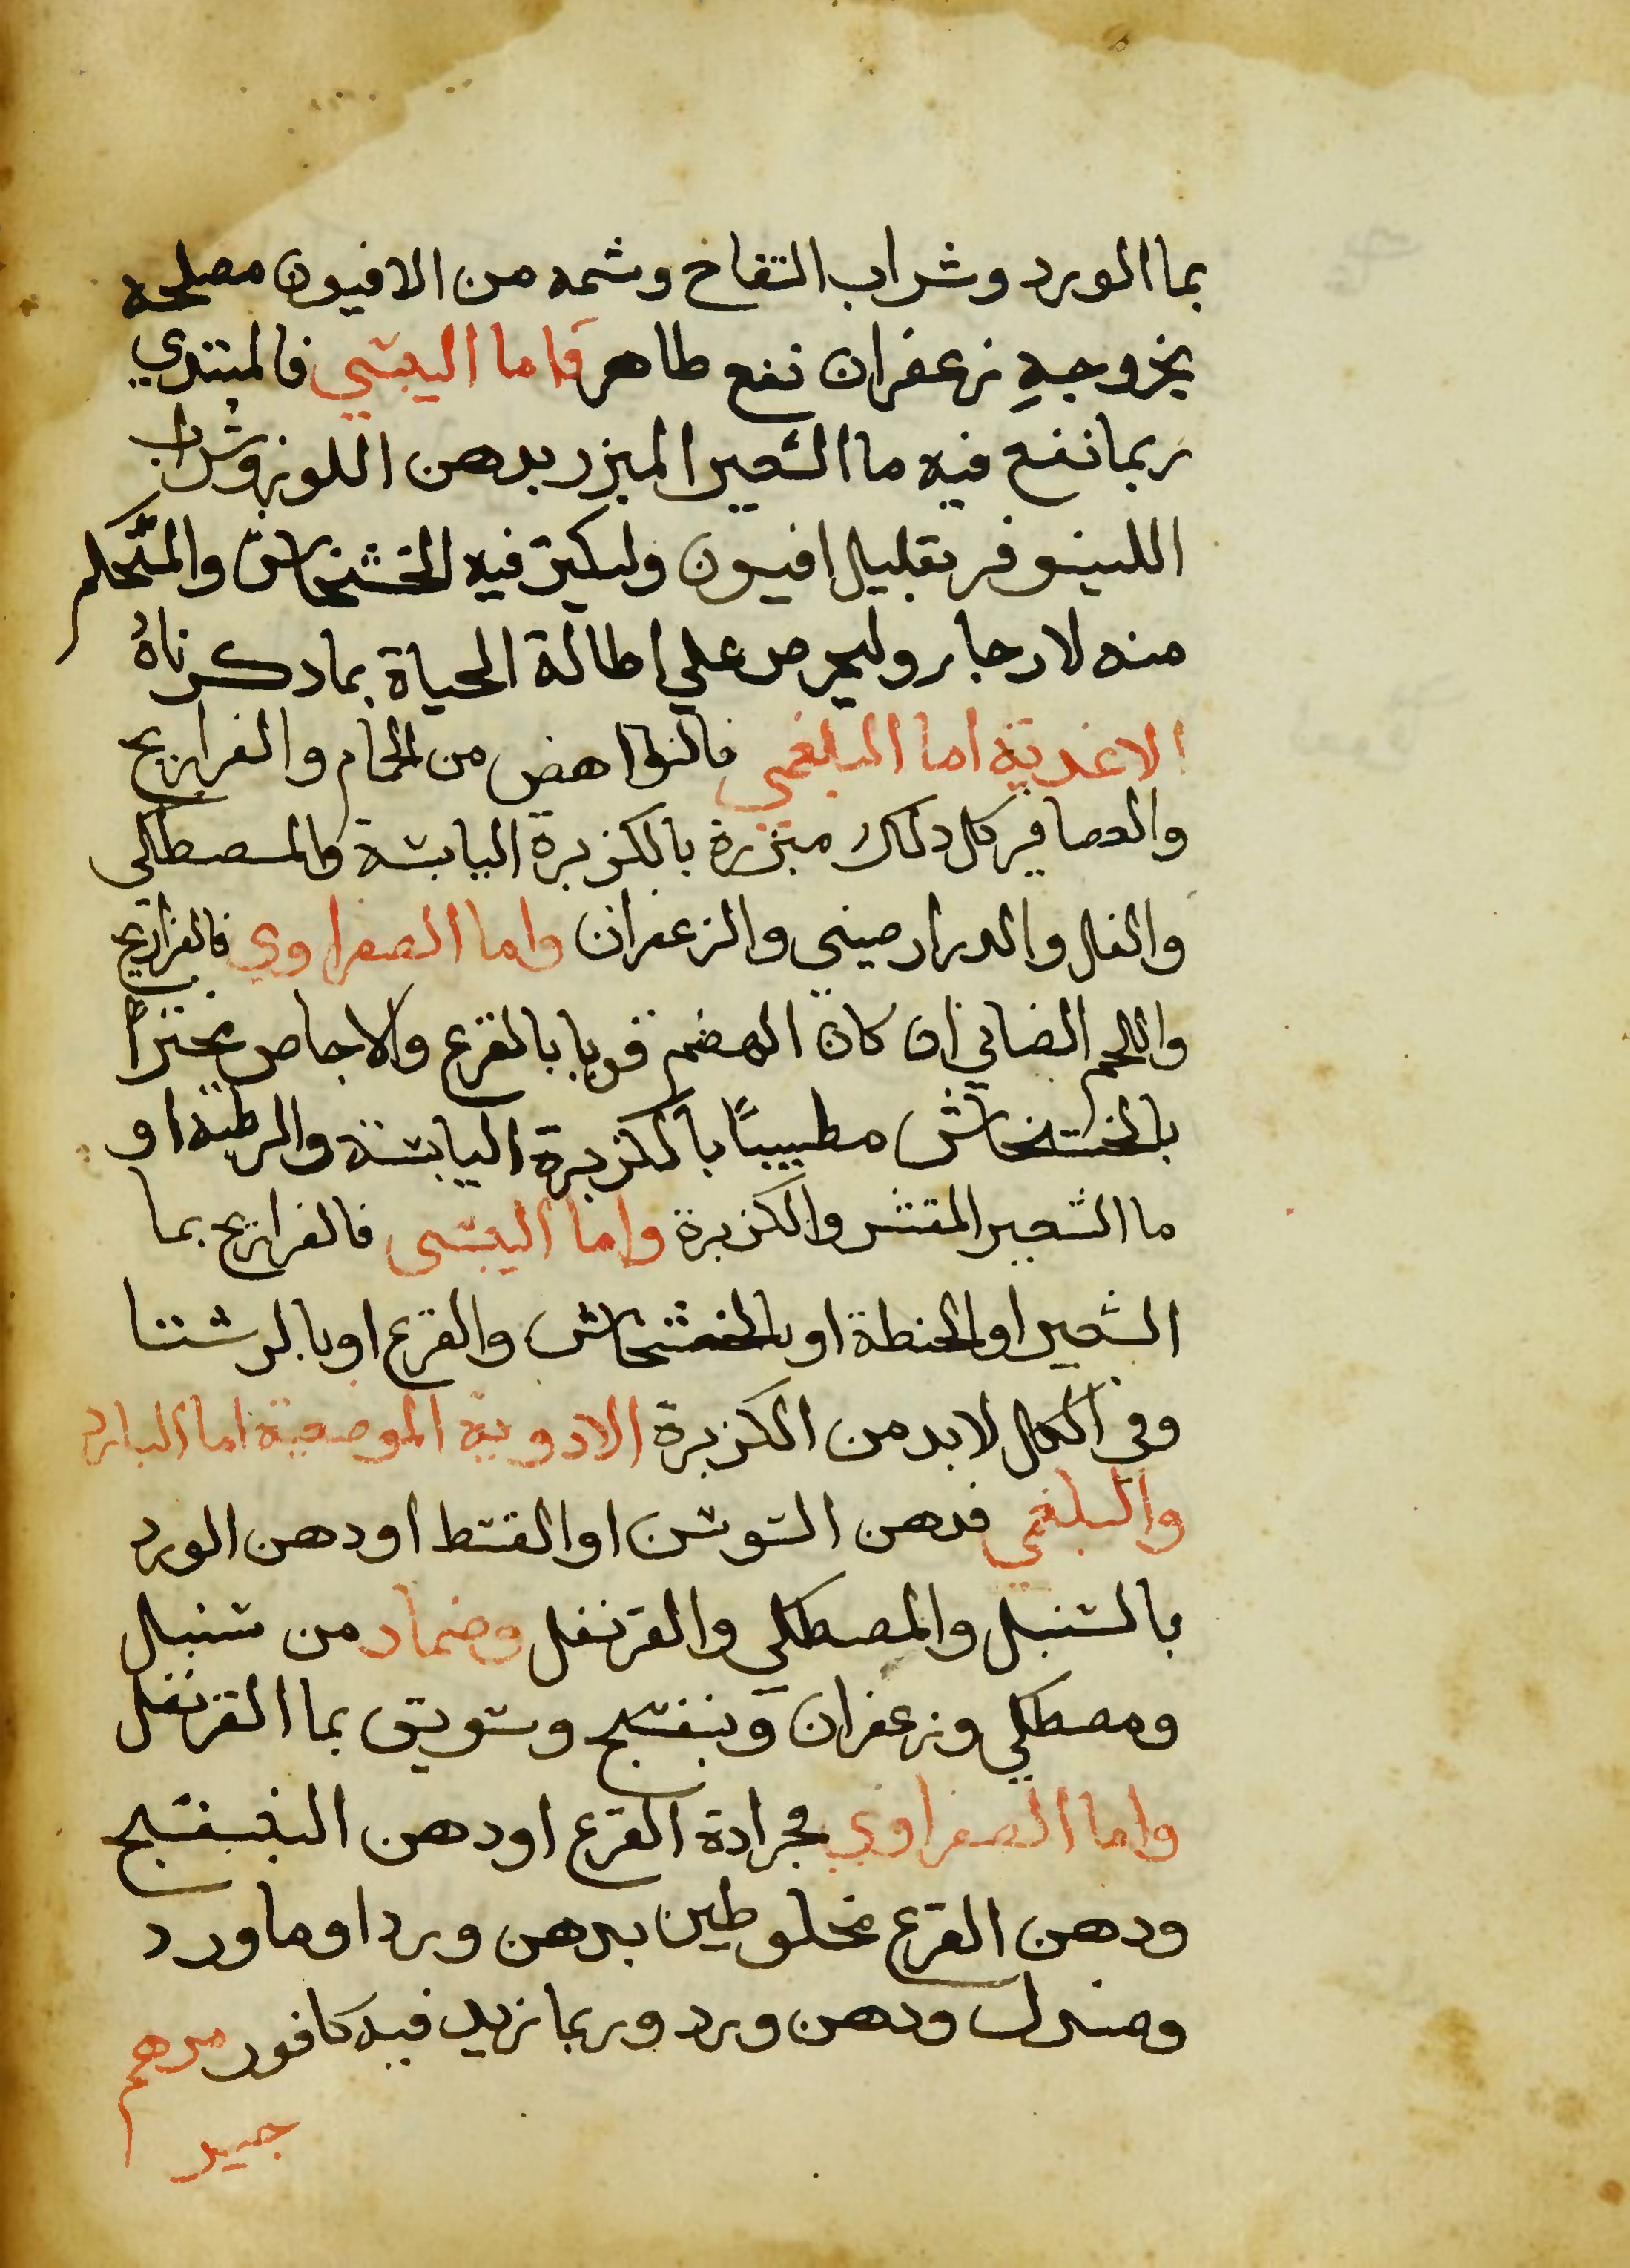 بما الورد وشراب التفاح وشمه من الافيون مصلحه
بخروجهِ زعفران نفع طاهر فاما اليبسي فالمبتدي
ربما نفع فيه ما الشعير المبزر بدهن اللوز وشراب
اللينوفر بقليل افيون وليكثر فيه الخشخاش والمتحكم
منه لا رجا برو وليحرص علي اطالة الحياة بما دكرناهُ
الاغدية اما البلغمي فالنواهض من الحمام والفراريج
والعصافير كل دلك مبزرة بالكزبرة اليابسة والمصطكي
والفلفل والدرار صيني والزعفران واما الصفراوي فالفراريج
واللحم الضاني ان كان الهضم قويا بالقرع والاجاص مخترًا
بالخشخاش مطيبًا بالكزبرة اليابسة والرطبة او
ما الشعير المقشر والكزبرة واما اليبسي فالفراريج بما
الشعير او الحنطة او بالخشخاش والقرع او بالرشتا
وفي الكل لابد من الكزبرة الادوية الموضعية اما البارد
والبلغمي فدهن السوسن او القسط او دهن الورد
بالسنبل والمصطكي والقرنفل وضماد من سنبل
ومصطكي وزعفران وبنفسج وسويق بما القرنفل
واما الصفراوي فجرادة القرع او دهن البنفسج
ودهن القرع مخلوطين بدهن ورد او ما ورد
وصندل ودهن ورد وربما زيد فيه كافور مرهم
جيد